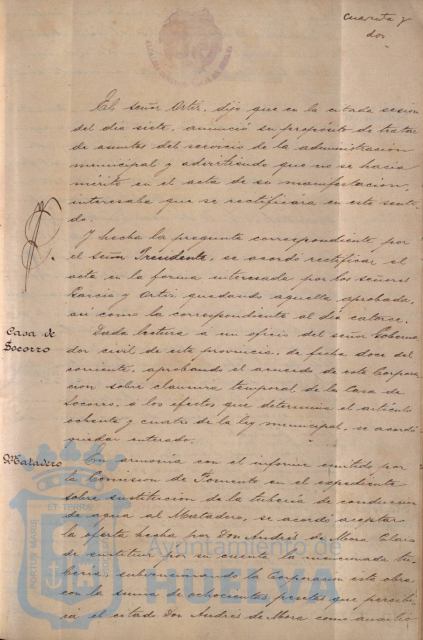 Cuarenta y
dos
El señor Ortiz, dijo que en la citada sesión
del dia siete, anunció su propósito de tratar
de asuntos del servicio de la administración
municipal y advirtiendo que no se hacia
mérito en el acta de su manifestacion,
interesaba que se rectificara en este senti-
do.
Y hecha la pregunta correspondiente, por
el señor Presidente, se acordó rectificar el
acta en la forma interesada por los señores
Garcia y Ortiz quedando aquella aprobada,
asi como la correspondiente al dia catorce.
Casa de
Socorro
Dada lectura a un oficio del señor Goberna
dor civil de esta provincia, de fecha doce del
corriente, aprobando el acuerdo de esta Corpo
racion sobre clausura temporal de la Casa de
Socorro, a los efectos que determina el articulo
ochenta y cuatro de la ley municipal, se acordó
quedar enterado.
Matadero
En armonía con el informe emitido por
la Comision de Fomento en el expediente
sobre sustitucion de la tuberia de conduccion
de agua al Matadero, se acordó aceptar
la oferta hecha por Don Andrés de Mora
de sustituir por su cuenta la mencionada tu
beria, subvencionando la Corporacion esta obra
con la suma de ochocientas pesetas que percibi
rá el citado Don Andrés de Mora como auxilio
Ayuntamiento de
HUELVA
PORTUS MARIS
ET TERRÆ